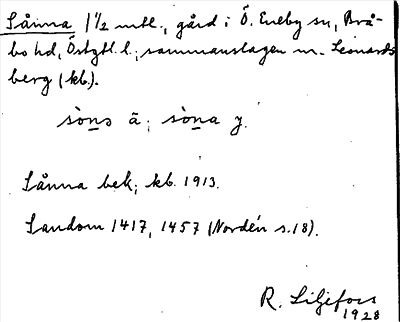 Sånna 1 1/2 mtl., gård i Ö. Eneby sn, Brå-
bo hd, Östgtl. l.; sammanslagen m. Leonards
berg (kb.).
sòns ä; sòna y.
Sånna bek; kb. 1913.
Sandom 1417, 1457 (Nordén s. 18).
R. Liljefors
1928